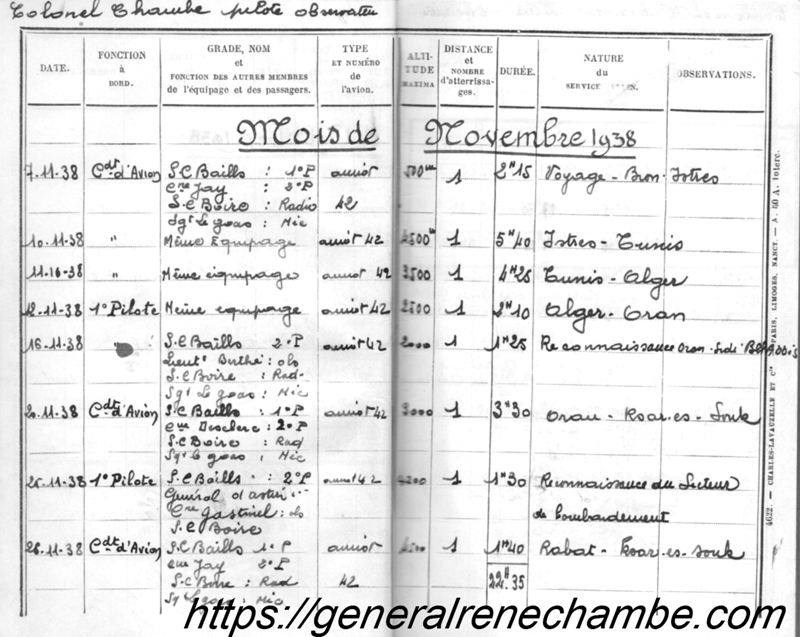 Colonel Chambe pilote observateur
DATE. FONCTION à BORD. GRADE, NOM et FONCTION DES AUTRES MEMBRES de l'équipage et des passagers. TYPE ET NUMÉRO de l'avion. ALTITUDE MAXIMA DISTANCE et NOMBRE d'atterrissages. DURÉE. NATURE du SERVICE OBSERVATIONS.
Mois de Novembre 1938
7-11-38 Cdt d'Avion S.C Baills : 1º P amiot 1 2H15 Voyage - Bron - Istres
Cne Jay : 2º P
S.C Boire : Radio 42
Sgt Le goas : Mic
10-11-38 " Même Équipage amiot 42 1 5H40 Istres - Tunis
11-11-38 " Même équipage amiot 42 3500 1 4H25 Tunis - Alger
12-11-38 1º Pilote Même équipage amiot 42 2500 1 2H10 Alger - Oran
16-11-38 " S.C Baills 2º P amiot 42 2000 1 1H25 Reconnaissance Oran - Sidi
Lieut : obs
S.C Boire : Rad
Sgt Le goas : Mic
20-11-38 Cdt d'Avion S.C Baills : 1º P amiot 42 3000 1 3H30 Oran - Ksar-es-Souk
Cne : 2º P
S.C Boire : Rad
Sgt Le goas : Mic
25-11-38 1º Pilote S.C Baills : 2º P amiot 42 1 1H30 Reconnaissance du Secteur
Général d'astier ... de bombardement
Cne Gastinel : obs
S.C Boire
26-11-38 Cdt d'Avion S.C Baills 1º P amiot 1 1H40 Rabat - Ksar-es-Souk
Cne Jay 2º P
S.C Boire : Rad 42 22H.35
Sgt Le goas : Mic
4622. — CHARLES-LAVAUZELLE ET Cie PARIS, LIMOGES, NANCY. — A. 50 A.
https://generalrenechambe.com